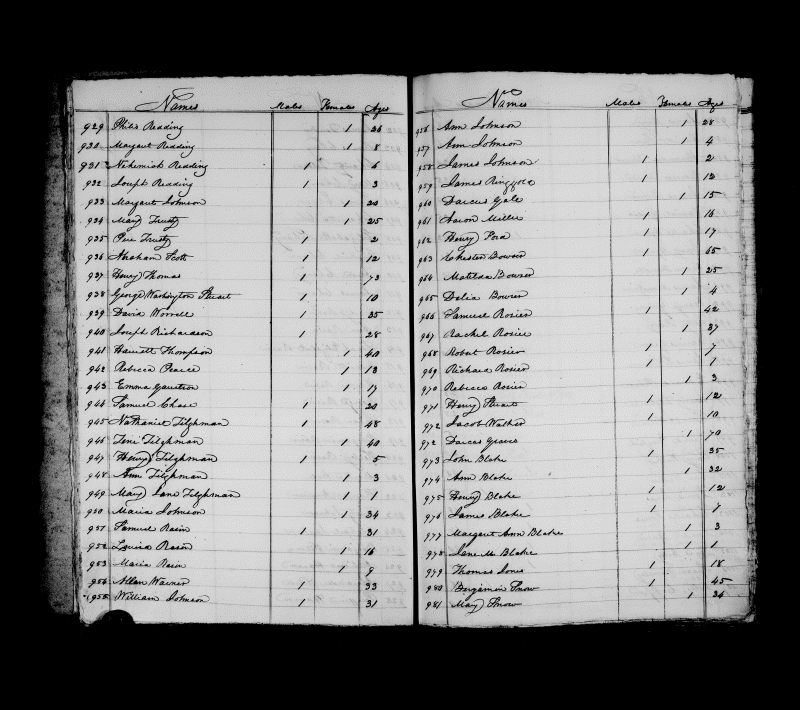 Names Males Females Ages
929 Philis Redding 1 26
930 Margaret Redding 1 8
931 Nehemiah Redding 1 6
932 Joseph Redding 1 3
933 Margaret Johnson 1 20
934 Mary Trusty 1 25
935 Pere Trusty 1 2
936 Abraham Scott 1 12
937 Henry Thomas 1 73
938 George Washington Stuart 1 10
939 David Worrell 1 35
940 Joseph Richardson 1 28
941 Harriett Thompson 1 40
942 Rebecca Pearce 1 13
943 Emma 1 17
944 Samuel Chase 1 20
945 Nathaniel Tilghman 1 48
946 Teni Tilghman 1 40
947 Henry Tilghman 1 5
948 Ann Tilghman 1 3
949 Mary Jane Tilghman 1 1
950 Maria Johnson 1 34
951 Samuel Rasin 1 31
952 Louisa Rasin 1 16
953 Maria Rasin 1 9
954 Allen Warner 1 33
955 William Johnson 1 31
Names Males Females Ages
956 Ann Johnson 1 28
957 Ann Johnson 1 4
958 James Johnson 1 2
959 James Ringgold 1 12
960 Darcus Gale 1 15
961 Aaron Miller 1 16
962 Henry 1 17
963 Chester Bowser 1 65
964 Matilda Bowser 1 25
965 Delia Bowser 1 4
966 Samuel Rosier 1 42
967 Rachel Rosier 1 37
968 Robert Rosier 1 7
969 Richard Rosier 1 1
970 Rebecca Rosier 1 3
971 Henry Stuart 1 12
972 Jacob Walker 1 10
972 Darcus Graves 1 70
973 John Blake 1 35
974 Ann Blake 1 32
975 Henry Blake 1 12
976 James Blake 1 7
977 Margaret Ann Blake 1 3
978 Jane M Blake 1 1
979 Thomas Jones 1 18
980 Benjamin Snow 1 45
981 Mary Snow 1 34